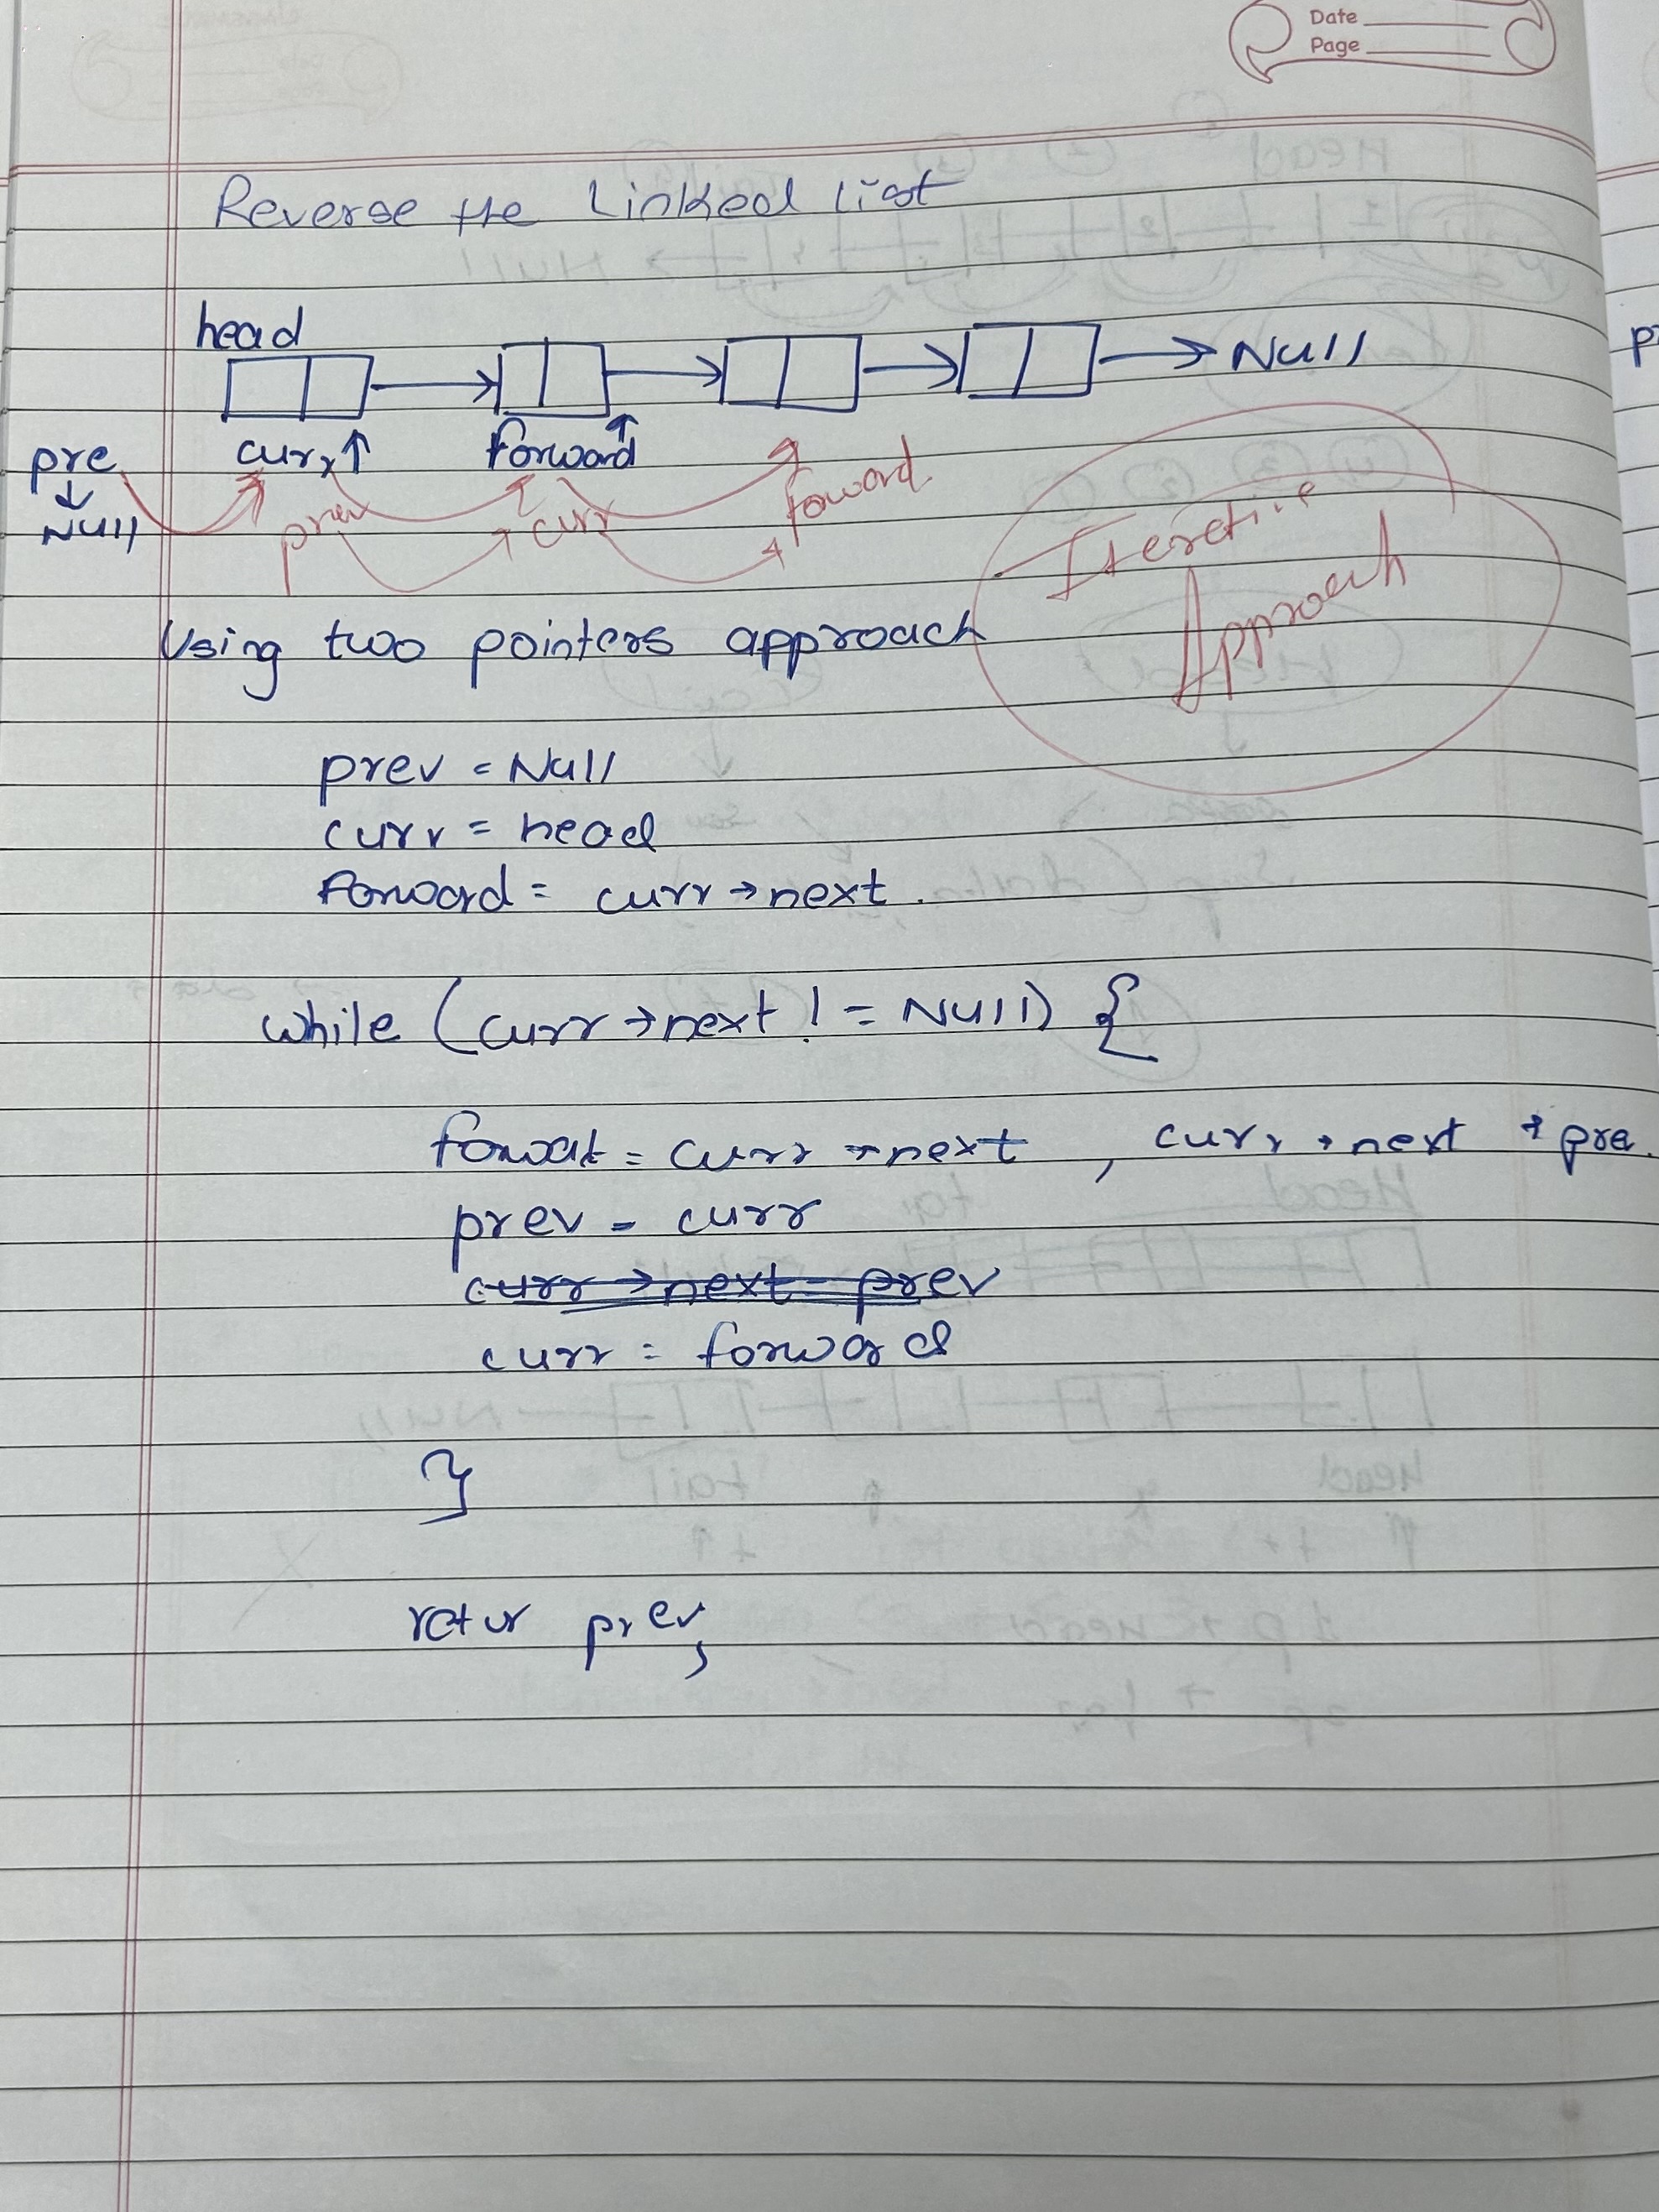 Date
Page
Reverse the Linked list
head
Null
pre curr↑ forward
↓
Null
prev curr forward
Iteretive
Approach
Using two pointers approach
prev = Null
curr = head
Forward = curr → next .
while (curr → next != Null) {
curr → next , curr → next → pre.
prev = curr
curr → next = prev
curr = forward
}
retur prev,